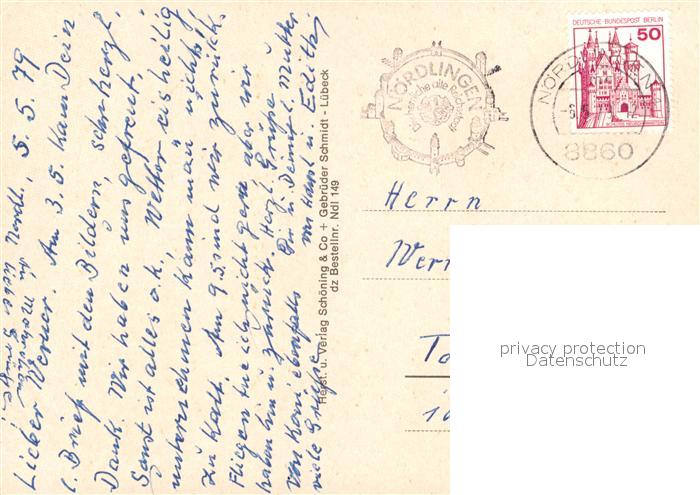 Nördl., 5.5.79
Lieber Werner. Am 3.5. kam Dein
l. Brief mit den Bildern, sehr herzl.
Dank. Wir haben uns gefreut.
Sonst ist alles o.k. Wetter eisheilig
unternehmen kann man nichts,
zu kalt. Am 9.5 sind wir zurück.
Fliegen tue ich nicht gern aber wir
haben hin u. zurück. Herzl. Grüße
Dir u. Deiner l. Mutter
von Hans u. Edith.
ebenfalls
viele Grüße
Herst. u. Verlag Schöning & Co + Gebrüder Schmidt - Lübeck
dz Bestellnr. Ndl 149
NÖRDLINGEN
Die alte Reichsstadt
DEUTSCHE BUNDESPOST BERLIN
50
8860
Herrn
Wern
privacy protection
Datenschutz